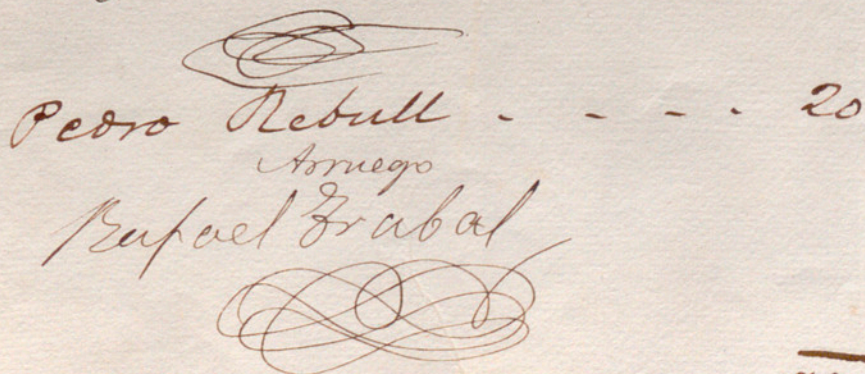 Pedro Rebull - - - - 20
Arruego
Rafael Trabal